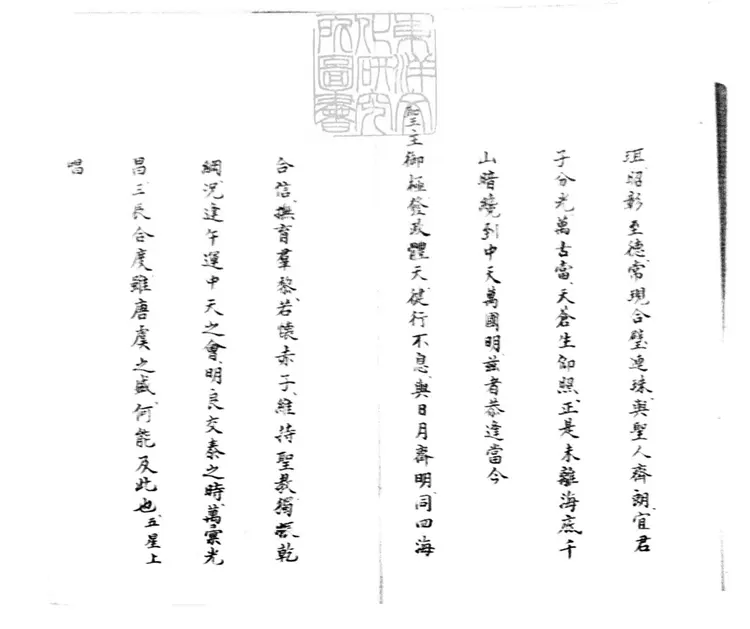 沍昭彰至德常現合璧連珠與聖人齊朗宜君
子分光萬古當天蒼生仰照正是未離海底千
山暗曉到中天萬國明茲者恭逢當今
聖主御極發政體天健行不息與日月齊明同四海
合信撫育羣黎若懷赤子維持聖教獨振乾
綱況逢午運中天之會明良交泰之時萬彙光
昌三辰合度雖唐虞之盛何能及此也五星上
唱
東洋文化研究所圖書